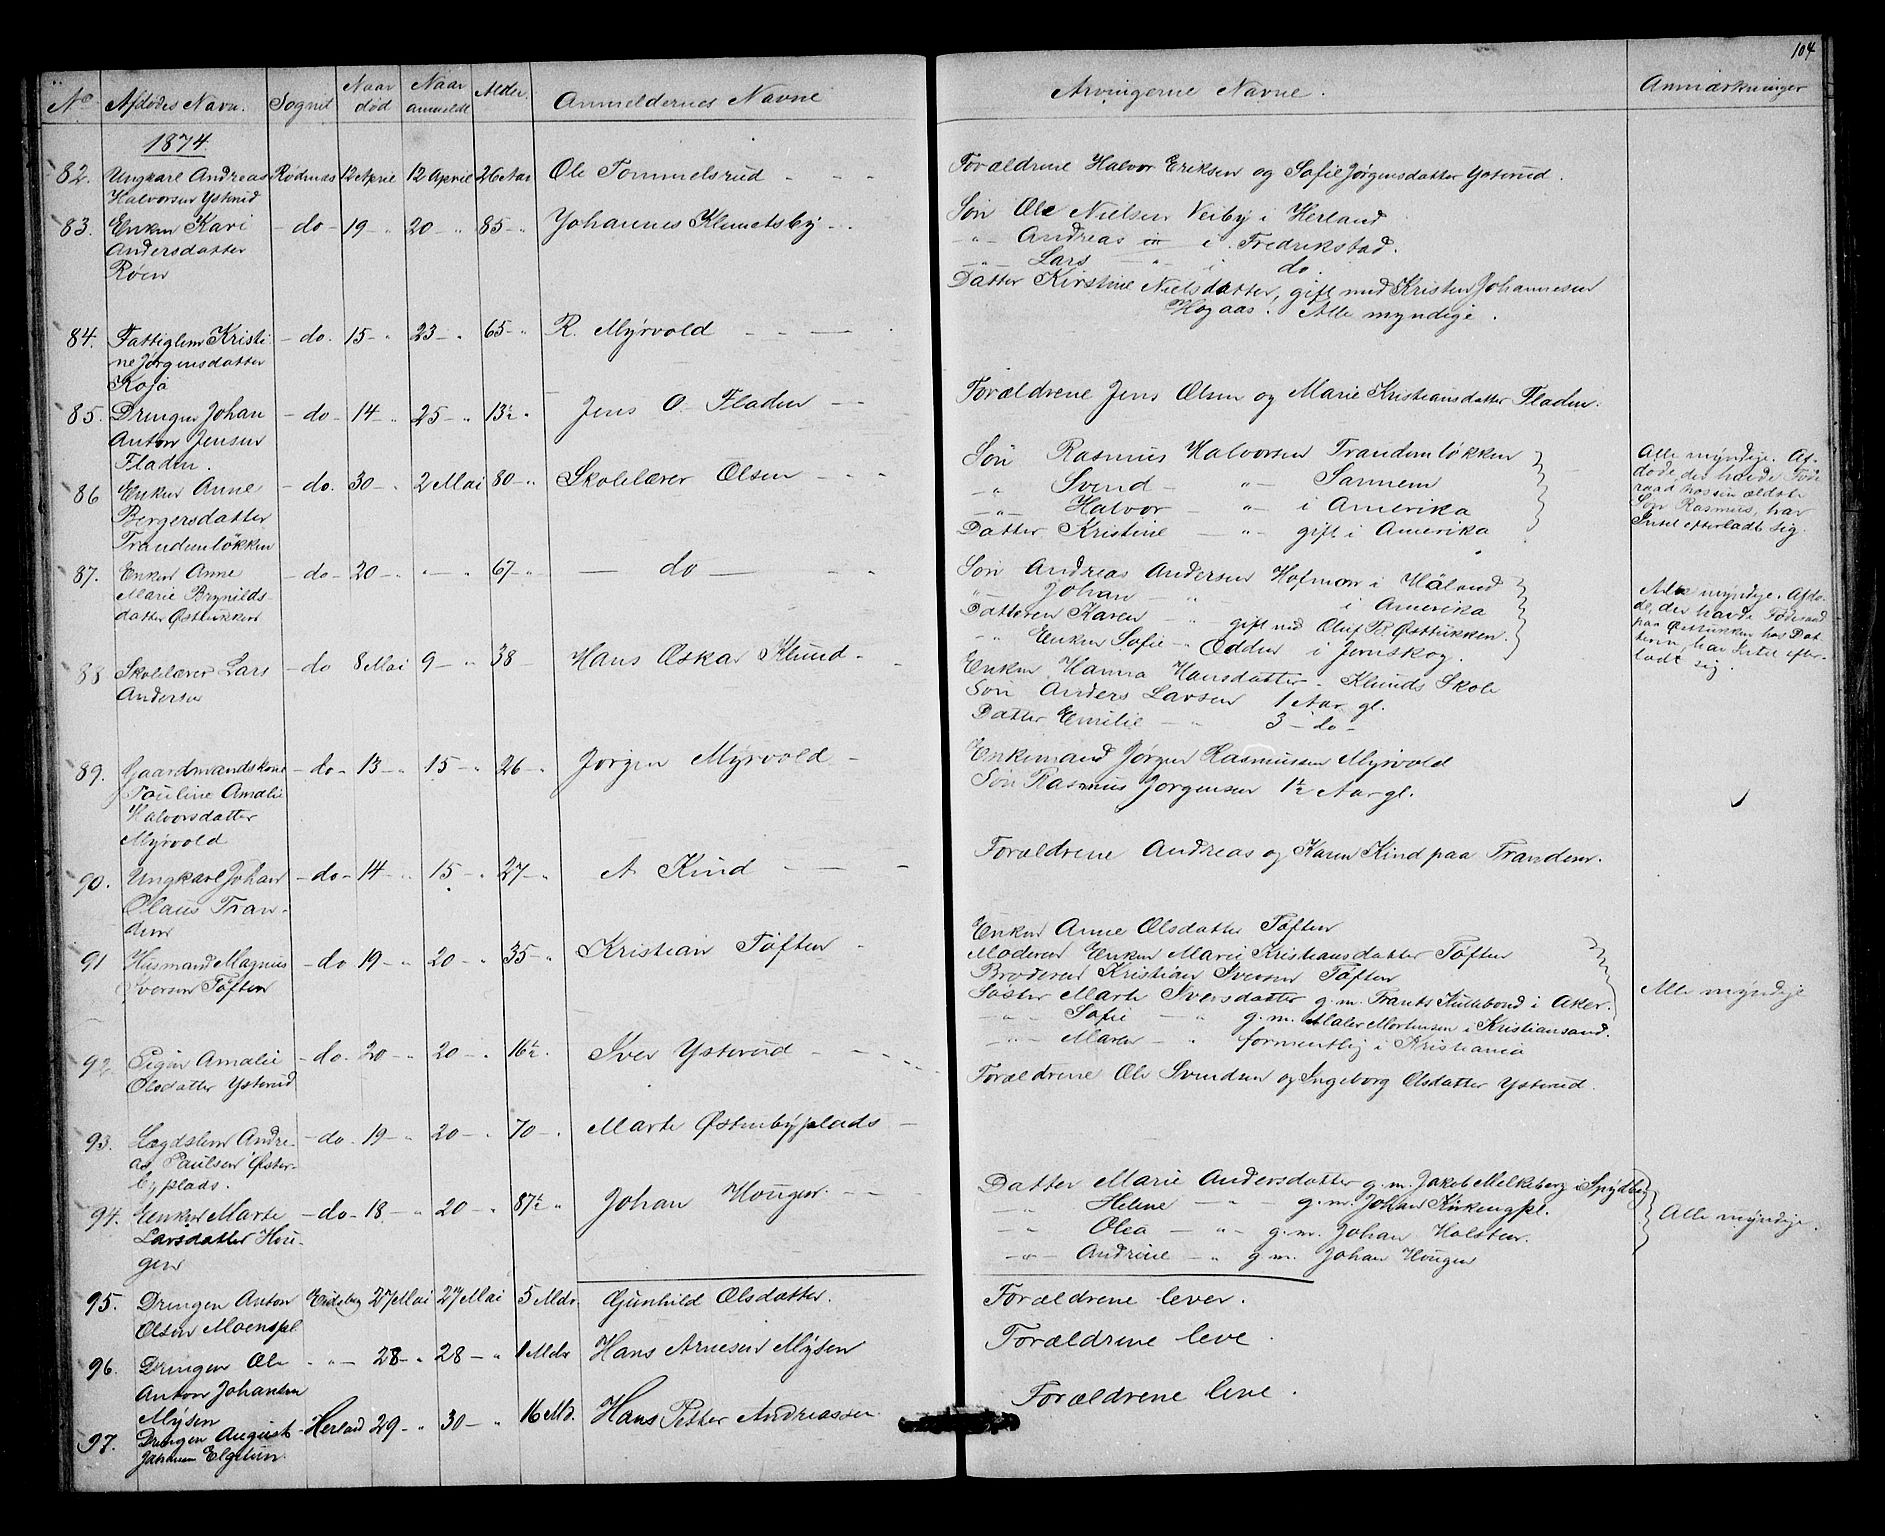 104
No Afdødes Navn. Sognet Naar død Naar anmeldt Alder. Anmeldernes Navne Arvingerne Navne. Anmærkninger
1874
82. Ungkarl Andreas Rødenes 12 April 12 April 26 Aar Ole Tommelsrud - - - Forældrene Halvor Eriksen og Sofie Jørgensdatter Ysterud.
Halvorsen Ysterud
83. Enken Kari - do - 19 - " 20 - " 85 - " Johannes Klemetsby - - Søn Ole Nielsen Veiby i Herland
Andersdatter - " - Andreas - " - i Fredrikstad.
Røen - " - Lars - " - i do.
Datter Kirstine Nielsdatter, gift med Kristen Johannesen
Hogaas. Alle myndige.
84. Fattiglem Kristi- - do. 15 - " 23 - " 65 - " R. Myrvold - - -
ne Jørgensdatter
Kojø
85. Drengen Johan - do - 14 - " 25 - " 13½ " Jens O. Fladen - - Forældrene Jens Olsen og Marie Kristiansdatter Fladen.
Anton Jensen
Fladen.
86 Enken Anne - do. 30 - " 2 Mai 80 - " Skolelærer Olsen - - Søn Rasmus Halvorsen Trandemløkken
Bergersdatter - " - Svend - " - Sannem
Trandemløkken - " - Halvor - " - i Amerika
Datter Kristine - " - gift i Amerika
Alle myndige. Af-
døde, der havde Føde-
raad hos sin ældste
Søn Rasmus, har
Intet efterladt sig.
87. Enken Anne - do - 20 - " " - " 67 - " - do - - - Søn Andreas Andersen Hofmoen i Høland
Marie Brynilds- " Johan - " i Amerika
datter Østtukken Datteren Karen - " gift med Oluf B. Østtukken.
- " Enken Sofie - " Odden i Jernskog.
Alle myndige. Afdø-
de, der havde Føderaad
paa Østtukken hos Dat-
teren, har Intet efter-
ladt sig.
88 Skolelærer Lars - do 8 Mai 9 - " 38 - Hans Oskar Klund - - Enken Hanna Hansdatter - Klunds Skole
Andersen Søn Anders Larsen 1 Aar gl.
Datter Emilie - " 3 - do -
89. Gaardmandskone - do - 13 - " 15 - " 26 - " Jørgen Myrvold - Enkemand Jørgen Rasmussen Myrvold
Pauline Amalie Søn Rasmus Jørgensen 1½ Aar gl.
Halvorsdatter
Myrvold
90. Ungkarl Johan - do - 14 - " 15 - " 27 - " A. Kind - - - Forældrene Andreas og Karen Kind paa Trandem.
Olaus Tran-
dem
91 Husmand Magnus - do 19 - " 20 - " 35 - " Kristian Toften - Enken Anne Olsdatter Toften
Iversen Toften Moderen Enken Marie Kristiansdatter Toften
Broderen Kristian Iversen Toften
Søster Marte Iversdatter g.m. Frants Kullebond i Aker.
- " - Sofie - " g.m. Maler Mortensen i Kristiansand.
- " - Maren - " formentlig i Kristiania
Alle myndige
92. Pigen Amalie - do - 20 - " 20 - " 16½ " Iver Ysterud - - - Forældrene Ole Svendsen og Ingeborg Olsdatter Ysterud.
Olsdatter Ysterud
93. Lægdslem Andre- - do - 19 - " 20 - " 70 - " Marte Østenbyplads -
as Paulsen Østen-
byplads.
94. Enken Marte - do - 18 - " 20 - " 87½ " Johan Hougen - - Datter Marie Andersdatter g.m. Jakob Melkeberg i Spydbg
Larsdatter Hou- - " - Helene - " - g.m. Johan Kirkengpl.
gen " Olea - " - g.m. Johan Holsten.
- " - Andrine - " g.m. Johan Hougen
Alle myndige.
95. Drengen Anton Eidsberg 27 Mai 27 Mai 5 Mdr. Gunhild Olsdatter. Forældrene lever.
Olsen Moenspl.
96. Drengen Ole " - 28 - " 28 - " 1 Mdr Hans Arnesen Mysen Forældrene leve.
Anton Johansen
Mysen
97. Drengen August Herland 29 - " 30 - " 16 Md. Hans Petter Andreassen Forældrene leve.
Johansen Elgetun.